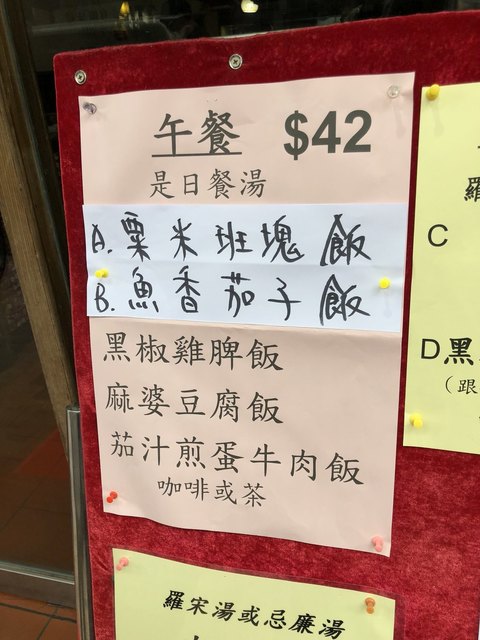 午餐 $42
是日餐湯
A. 粟米班塊飯
B. 魚香茄子飯
黑椒雞脾飯
麻婆豆腐飯
茄汁煎蛋牛肉飯
咖啡或茶
羅
C
D黑
（跟
羅宋湯或忌廉湯